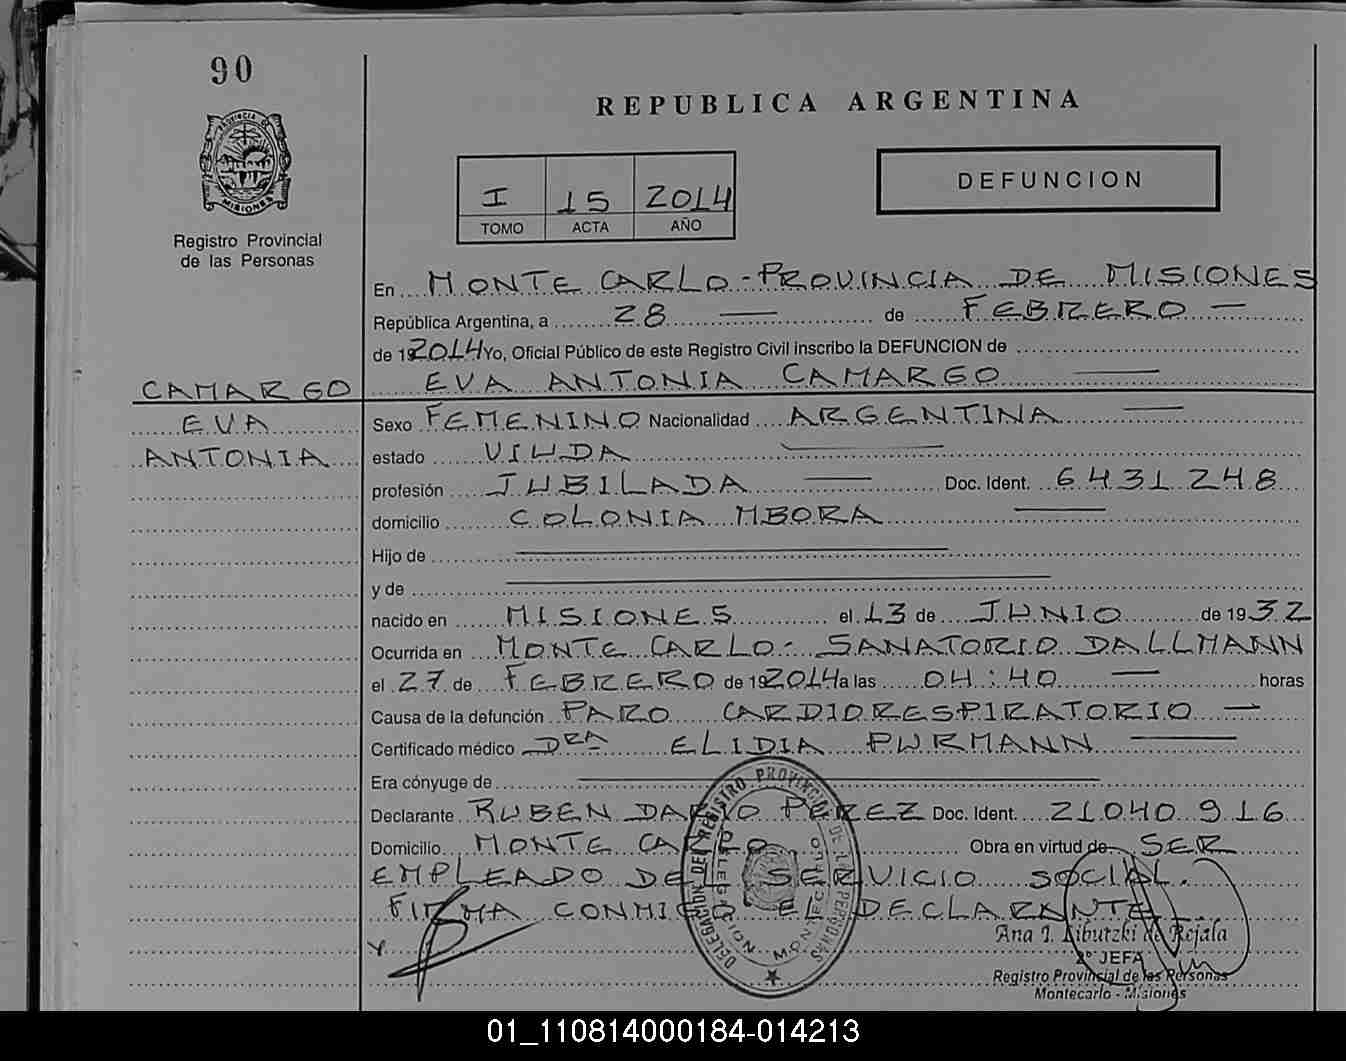 90
PROVINCIA DE
MISIONES
Registro Provincial
de las Personas
REPUBLICA ARGENTINA
I 15 2014
TOMO ACTA AÑO
DEFUNCION
En MONTE CARLO - PROVINCIA DE MISIONES
República Argentina, a 28 de FEBRERO
de 192014 Yo, Oficial Público de este Registro Civil inscribo la DEFUNCION de
EVA ANTONIA CAMARGO
CAMARGO
EVA
ANTONIA
Sexo FEMENINO Nacionalidad ARGENTINA
estado VIUDA
profesión JUBILADA Doc. Ident. 6431248
domicilio COLONIA MBORA
Hijo de
y de
nacido en MISIONES el 13 de JUNIO de 1932
Ocurrida en MONTE CARLO - SANATORIO DALLMANN
el 27 de FEBRERO de 192014 a las 04:40 horas
Causa de la defunción PARO CARDIORESPIRATORIO
Certificado médico DRA ELIDIA PURMANN
Era cónyuge de
Declarante RUBEN DARIO PEREZ Doc. Ident. 21040916
Domicilio MONTE CARLO Obra en virtud de SER
EMPLEADO DEL SERVICIO SOCIAL.
FIRMA CONMIGO EL DECLARANTE
Y
DELEGACION DEL REGISTRO PROVINCIAL DE LAS PERSONAS
MONTECARLO
Ana I. Libutzki de Rejala
2º JEFA
Registro Provincial de las Personas
Montecarlo - Misiones
01_110814000184-014213